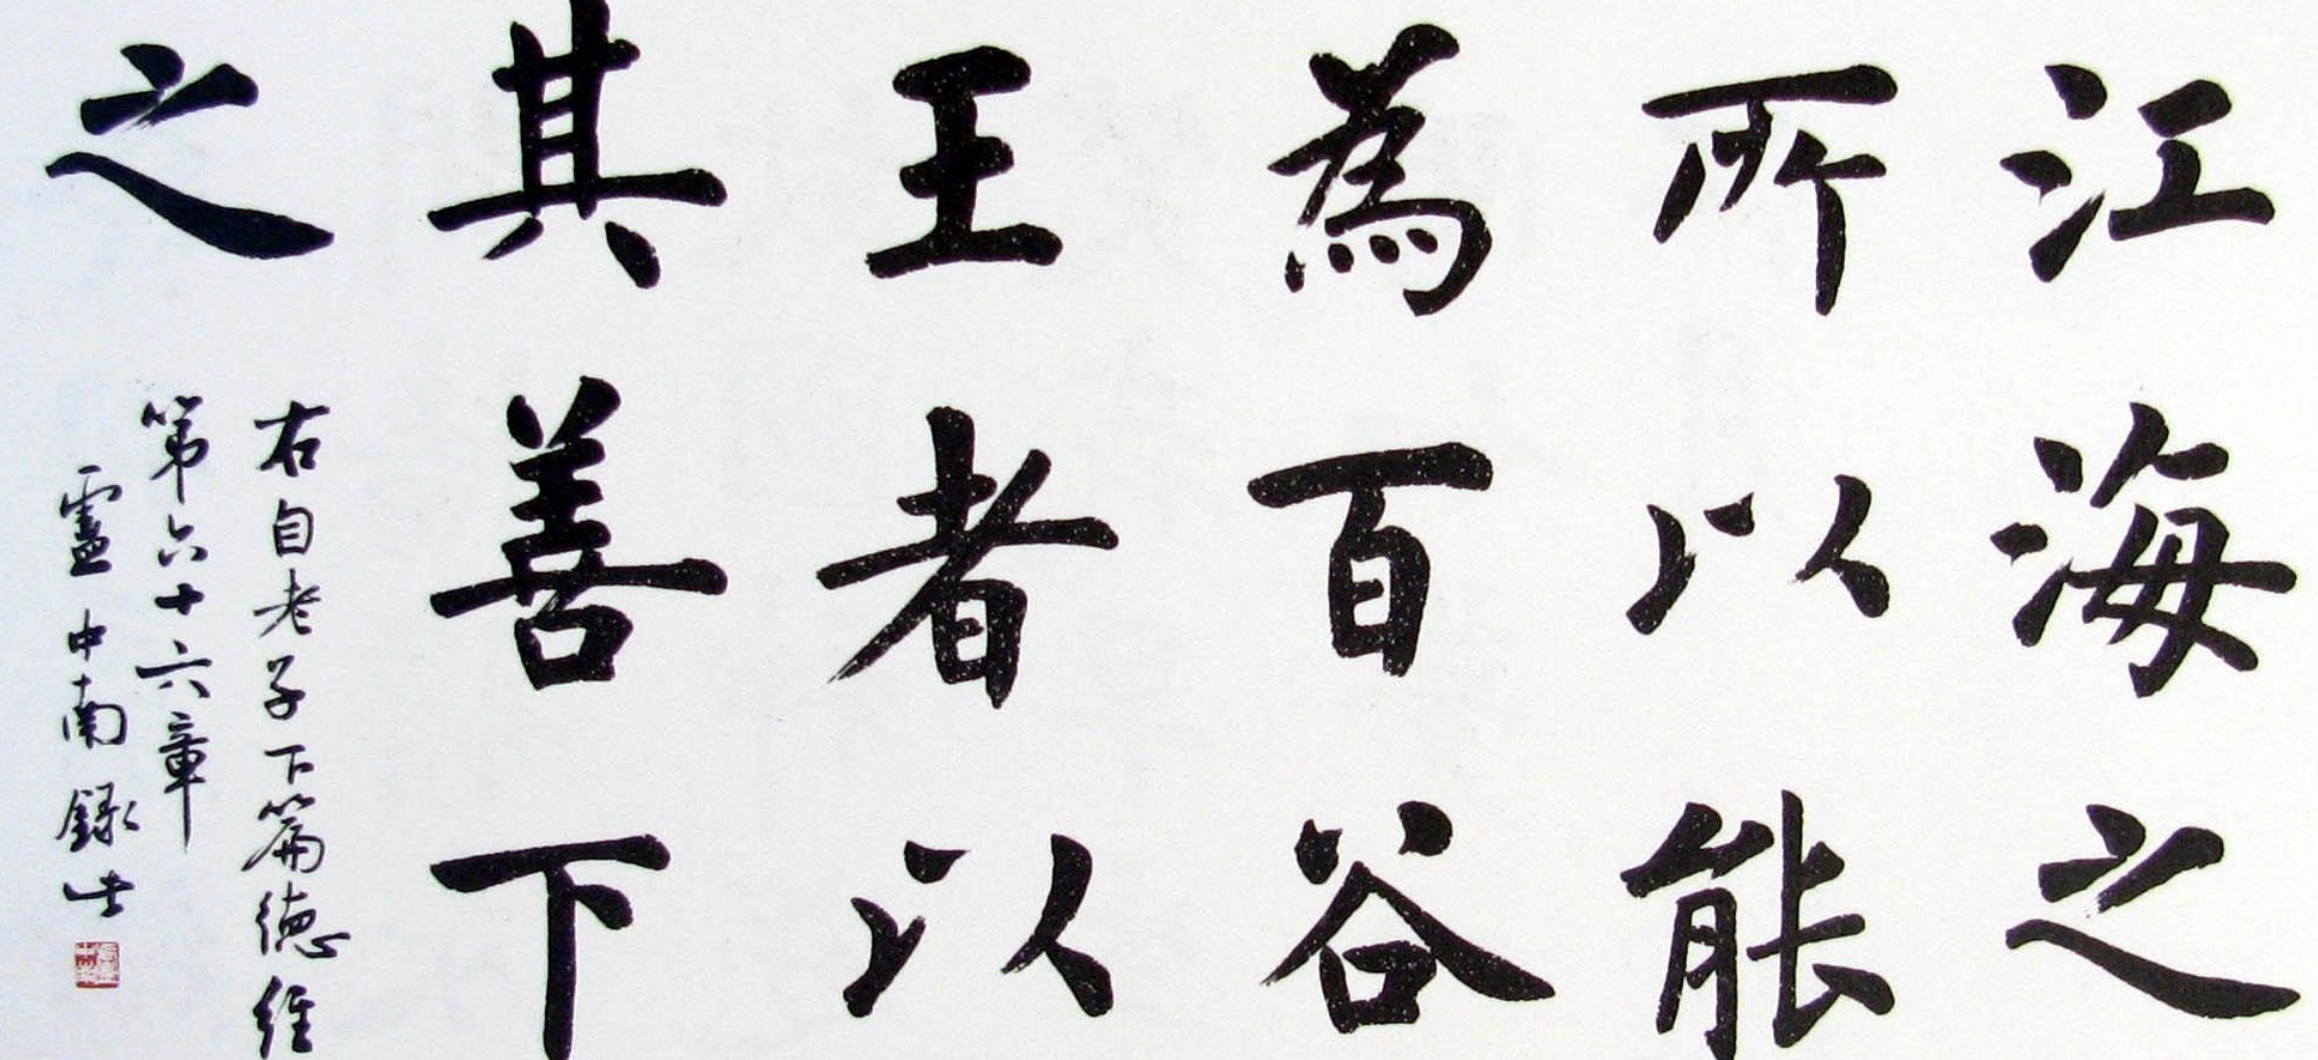 江海之
所以能
為百谷
王者以
其善下
之
右自老子下篇德經
第六十六章
盧中南錄